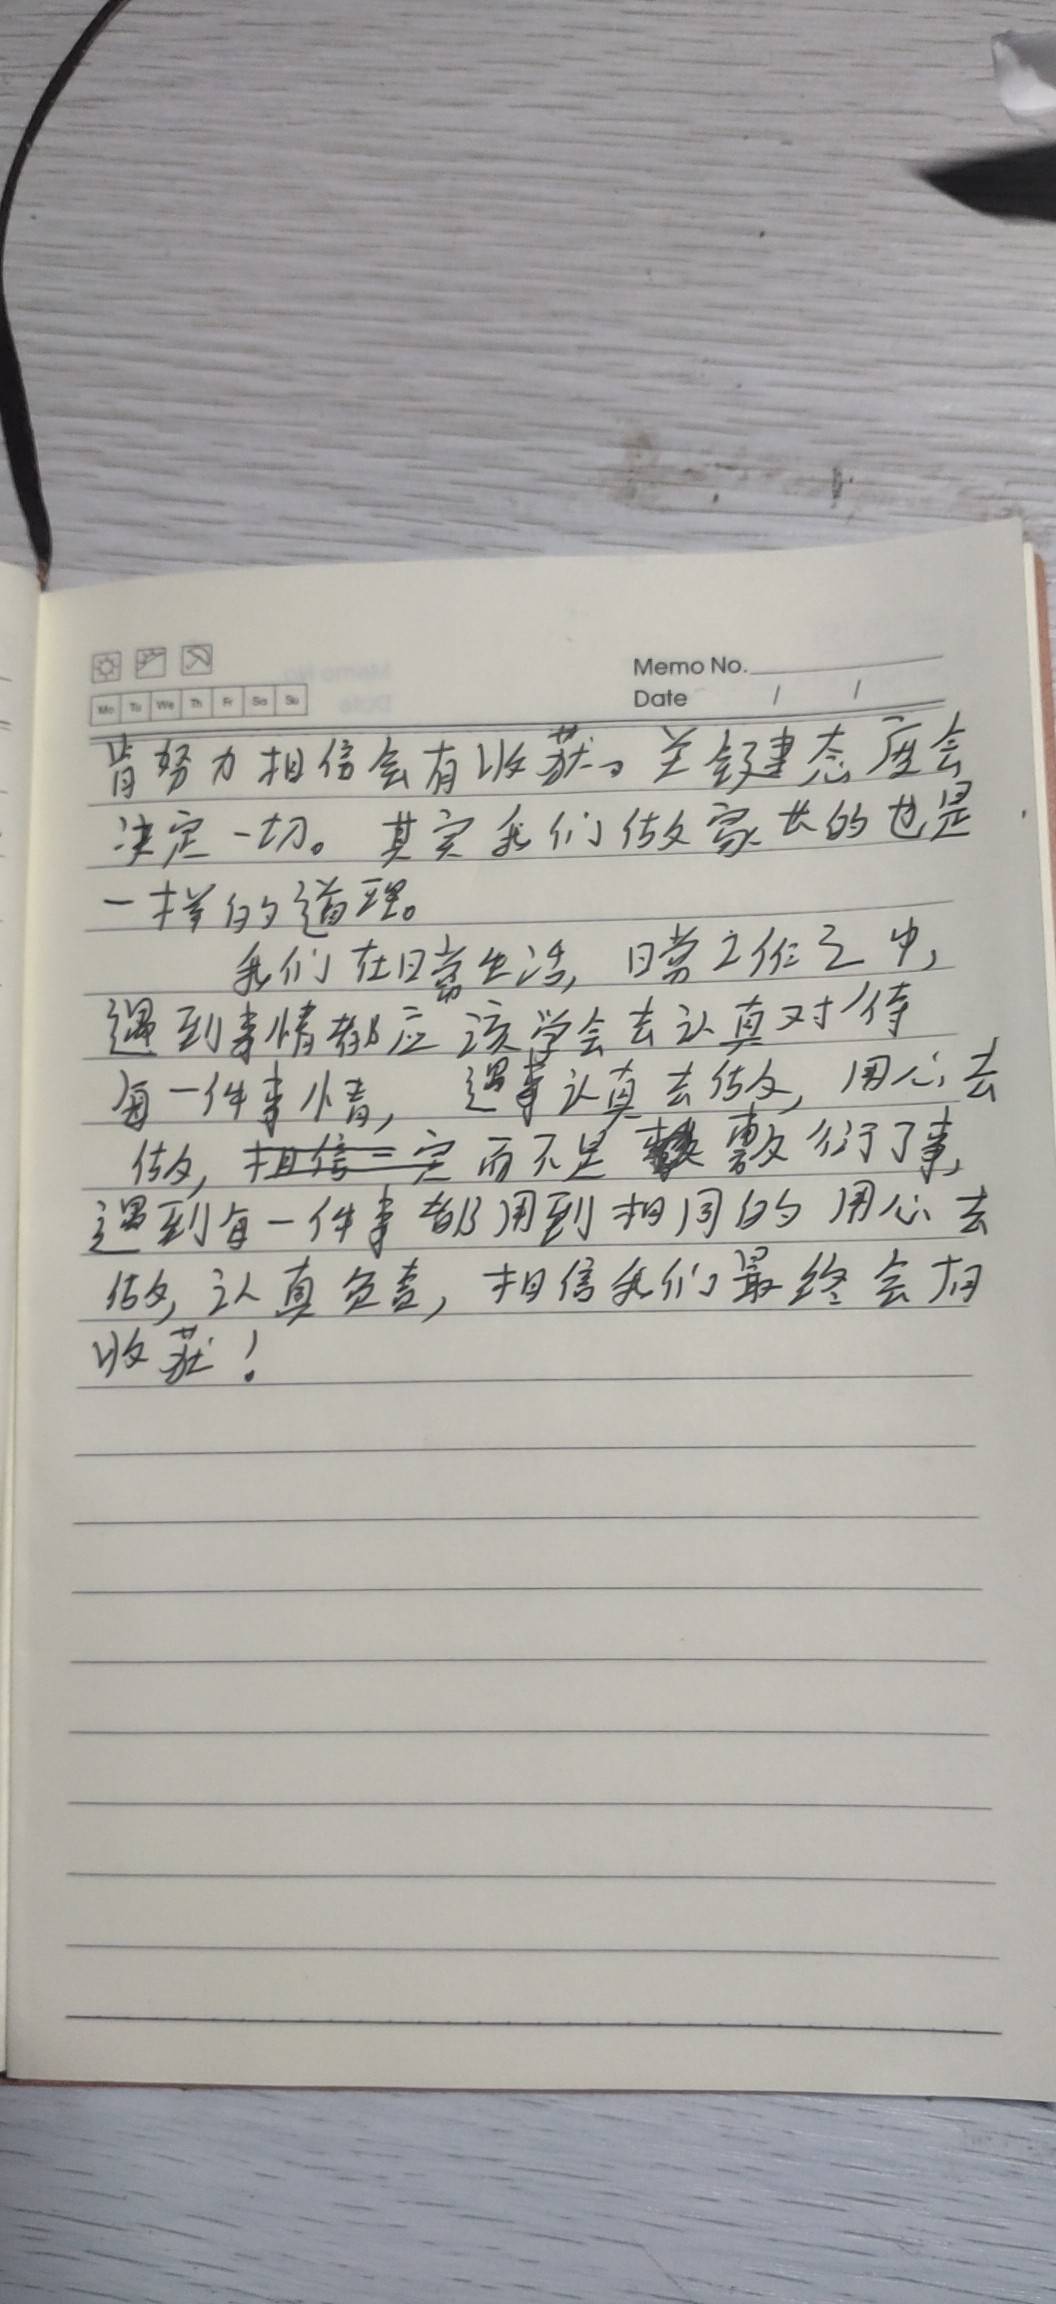 Memo No.
Mo Tu We Th Fr Sa Su
Date / /
肯努力相信会有收获。关键态度会
决定一切。其实我们做家长的也是
一样的道理。
我们在日常生活,日常工作之中,
遇到事情都应该学会去认真对待
每一件事情,遇事认真去做,用心去
做,相信一定而不是敷衍了事,
遇到每一件事都用到相同的用心去
做,认真负责,相信我们最终会有
收获!